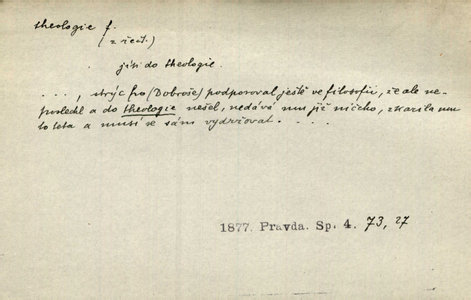 theologie f.
(z řečt.)
jíti do theologie.
. . . , strýc ho (Dobroše) podporoval ještě ve filosofii, že ale ne-
poslechl a do theologie nešel, nedává mu již ničeho, zkazila mu
to teta a musí se sám vydržovat. . . . .
1877. Pravda. Sp. 4. 73, 27